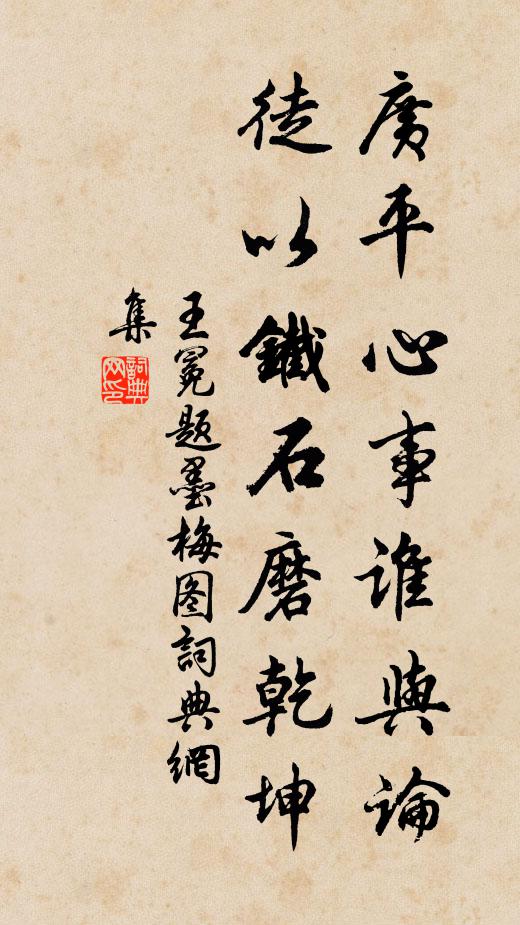 廣平心事誰與論
徒以鐵石磨乾坤
王冕题墨梅图詞典網
集
詞典
网印